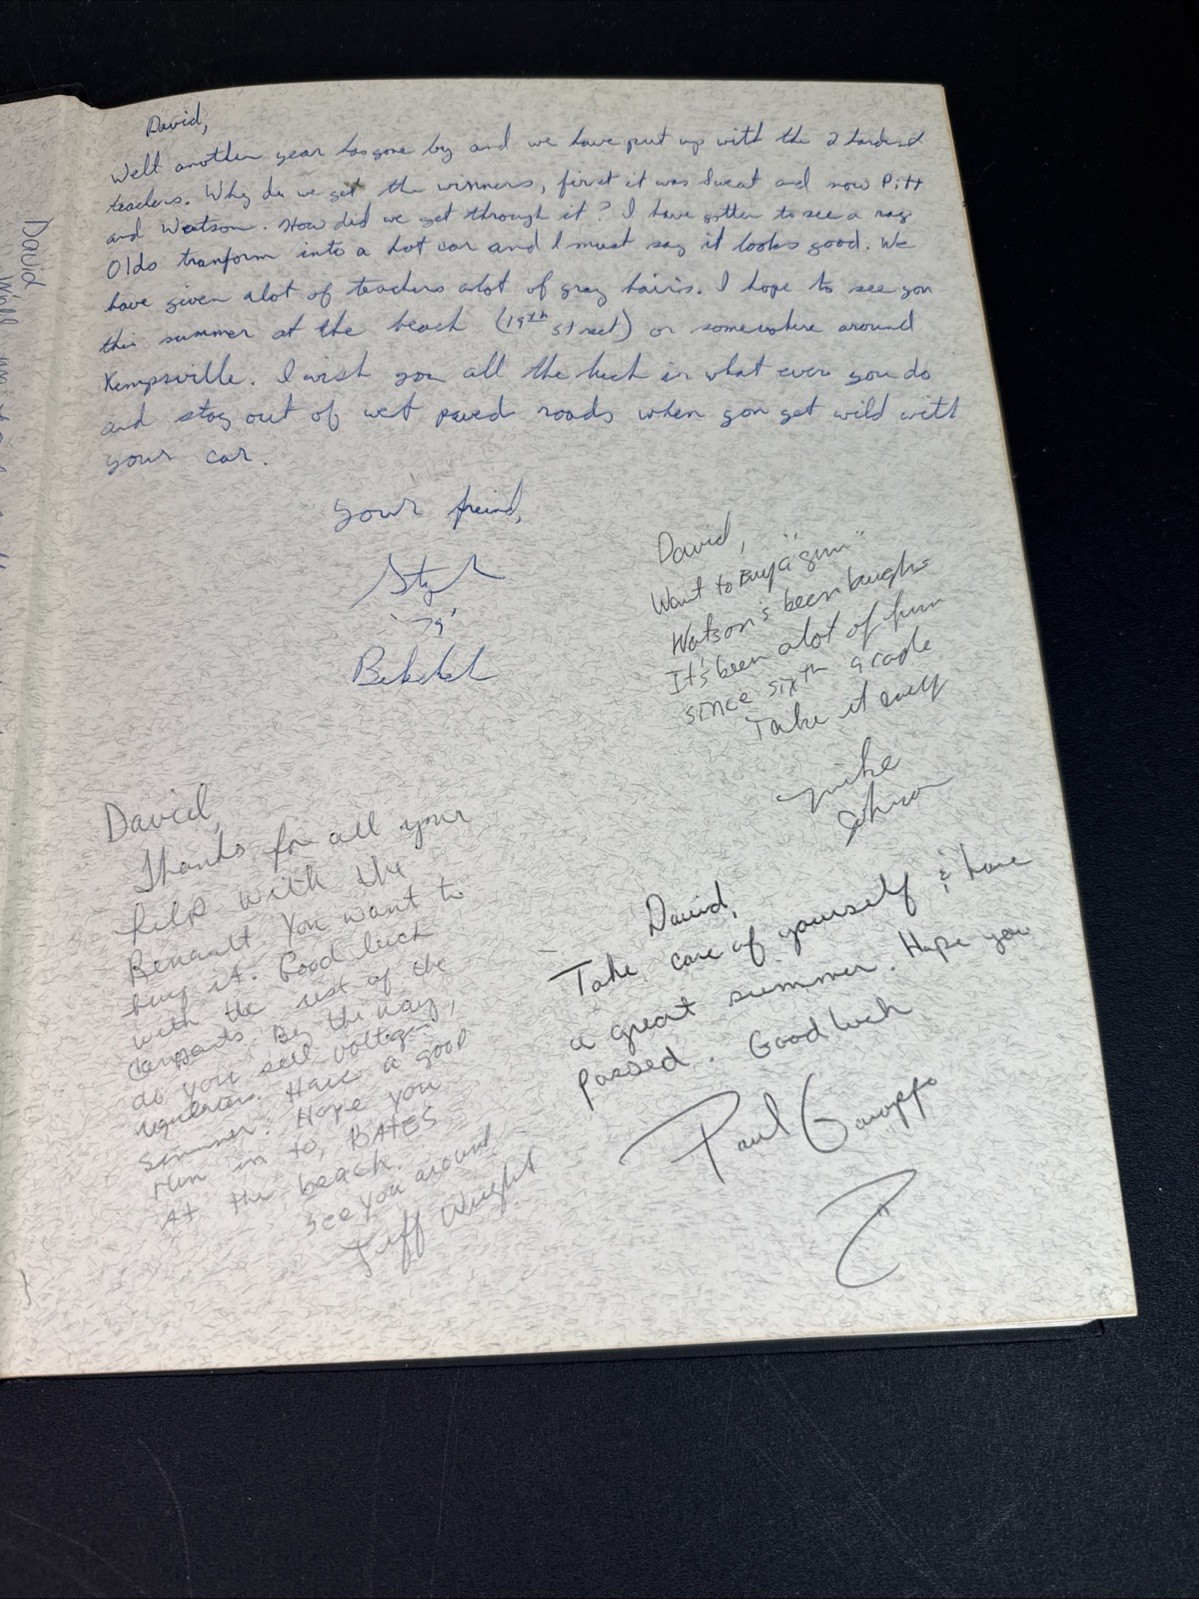 David,
Well another year has gone by and we have put up with the 2 hardest
teachers. Why do we get the winners, first it was Sweat and now Pitt
and Watson. How did we get through it? I have gotten to see a rag
Olds tranform into a hot car and I must say it looks good. We
have given alot of teachers alot of gray hairs. I hope to see you
this summer at the beach (19th street) or somewhere around
Kempsville. I wish you all the luck in what ever you do
and stay out of wet paved roads when you get wild with
your car.
your freind,
'79'
David,
Want to Buy a "gun"
Watson's been laughs
It's been alot of fun
since sixth grade
Take it easy
Mike
Johnson
David,
Thanks for all your
help with the
Renault. You want to
buy it. Good luck
with the rest of the
By the way,
do you sell voltage
Have a good
summer. Hope you
run in to, BATES
At the beach.
See you around
Jeff Wright
David,
Take care of yourself & have
a great summer. Hope you
passed. Good luck
Paul
David
Well